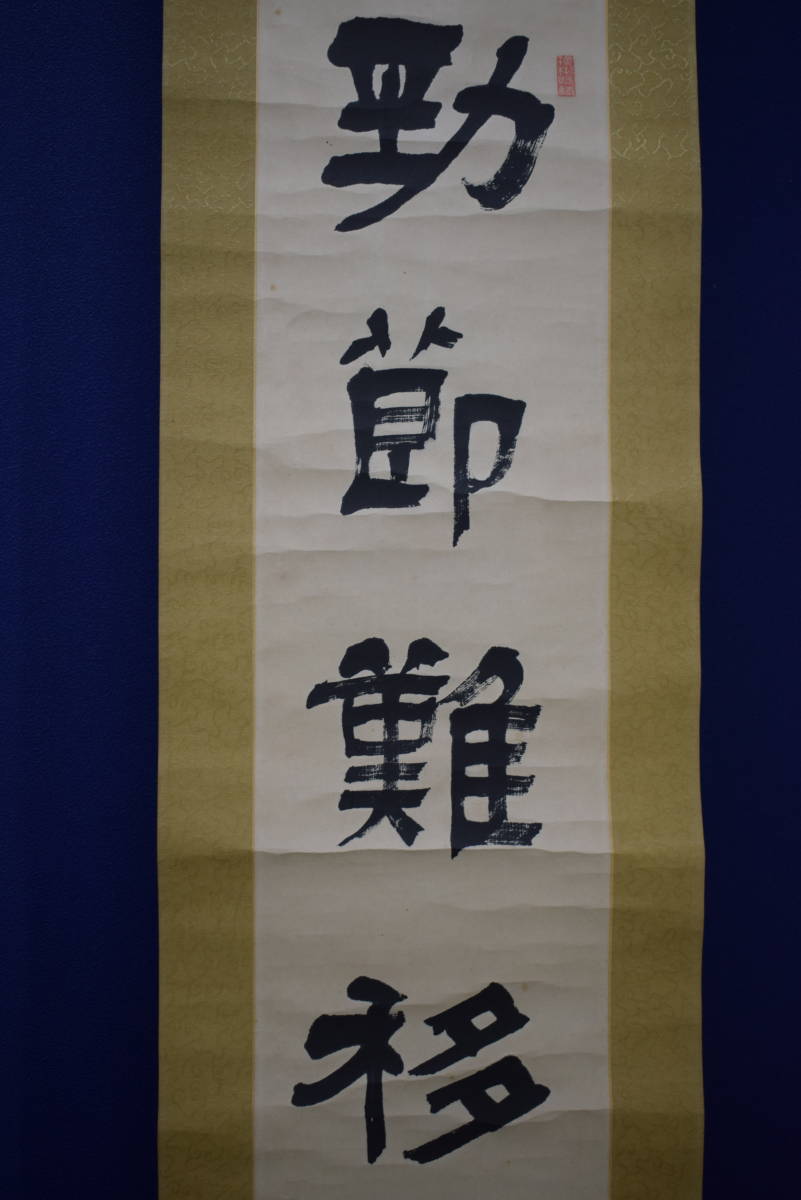 勁節難移